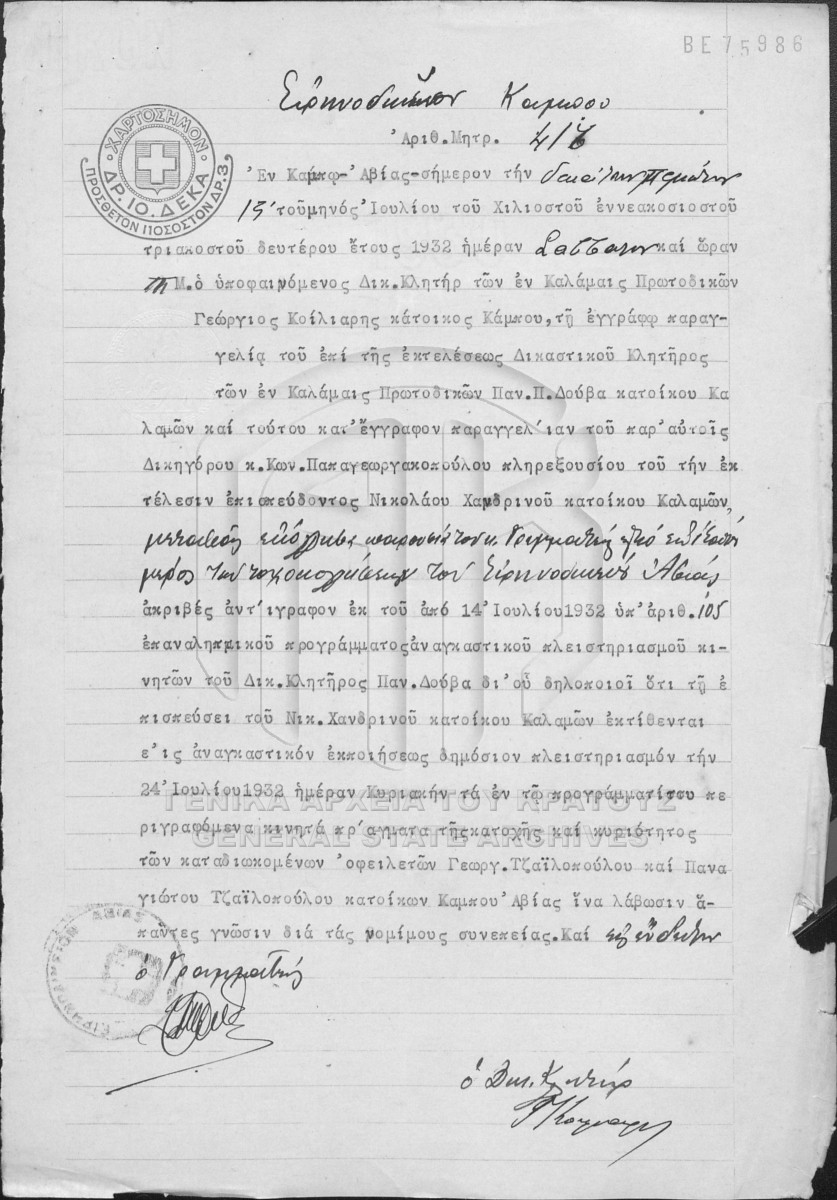 ΒΕ 75986
Εἰρηνοδικεῖον Κάμπου
ΧΑΡΤΟΣΗΜΟΝ
ΔΡ. 10. ΔΕΚΑ
ΠΡΟΣΘΕΤΟΝ ΠΟΣΟΣΤΟΝ ΔΡ. 3
Ἀριθ. Μητρ.
Ἐν Καμπῳ-Ἀβίας-σήμερον τήν
τοῦμηνός Ἰουλίου τοῦ Χιλιοστοῦ ἐννεακοσιοστοῦ
τριακοστοῦ δευτέρου ἔτους 1932 ἡμέραν Σάββατον καί ὥραν
Μ.ὁ ὑποφαινόμενος Δικ.Κλητήρ τῶν ἐν Καλάμαις Πρωτοδικῶν
Γεώργιος Κοίλιαρης κάτοικος Κάμπου,τῇ ἐγγράφῳ παραγ-
γελίᾳ τοῦ ἐπί τῆς ἐκτελέσεως Δικαστικοῦ Κλητῆρος
τῶν ἐν Καλάμαις Πρωτοδικῶν Παν.Π.Δούβα κατοίκου Κα
λαμῶν καί τούτου κατ'ἔγγραφον παραγγελ'ιαν τοῦ παρ'αὐτοῖς
Δικηγόρου κ.Κων.Παπαγεωργακοπούλου πληρεξουσίου τοῦ τήν ἐκ
τέλεσιν ἐπισπεύδοντος Νικολάου Χανδρινοῦ κατοίκου Καλαμῶν,
παρουσίᾳ τοῦ κ. Γραμματέως
μέρος τοῦ Εἰρηνοδικείου Ἀβίας
ἀκριβές ἀντ'ίγραφον ἐκ τοῦ ἀπό 14 Ἰουλίου1932 ὑπ'ἀριθ.105
ἐπαναληπτικοῦ προγράμματοςἀναγκαστικοῦ πλειστηριασμοῦ κι-
νητῶν τοῦ Δικ.Κλητῆρος Παν.Δούβα δι'οὗ δηλοποιοῖ ὅτι τῇ ἐ
πισπεύσει τοῦ Νικ.Χανδρινοῦ κατοίκου Καλαμῶν ἐκτίθενται
ε'ις ἀναγκαστικόν ἐκποιήσεως δημόσιον πλειστηριασμόν τήν
24 Ἰουλίου1932 ἡμέραν Κυριακήν τά ἐν τῷ προγράμματίτου πε
ριγραφόμενα κινητά πρ'αγματα τῆςκατοχῆς καί κυριότητος
τῶν καταδιωκομένων ὀφειλετῶν Γεωργ.Τζαϊλοπούλου καί Πανα
γιώτου Τζαϊλοπούλου κατοίκων Καμπου Ἀβίας ἵνα λάβωσιν ἅ-
παντες γνῶσιν διά τάς νομίμους συνεπείας.Καί εἰς ἔνδειξιν
ΓΕΝΙΚΑ ΑΡΧΕΙΑ ΤΟΥ ΚΡΑΤΟΥΣ
GENERAL STATE ARCHIVES
ΕΙΡΗΝΟΔΙΚΕΙΟΝ ΑΒΙΑΣ
ὁ Γραμματεύς
ὁ Δικ. Κλητήρ